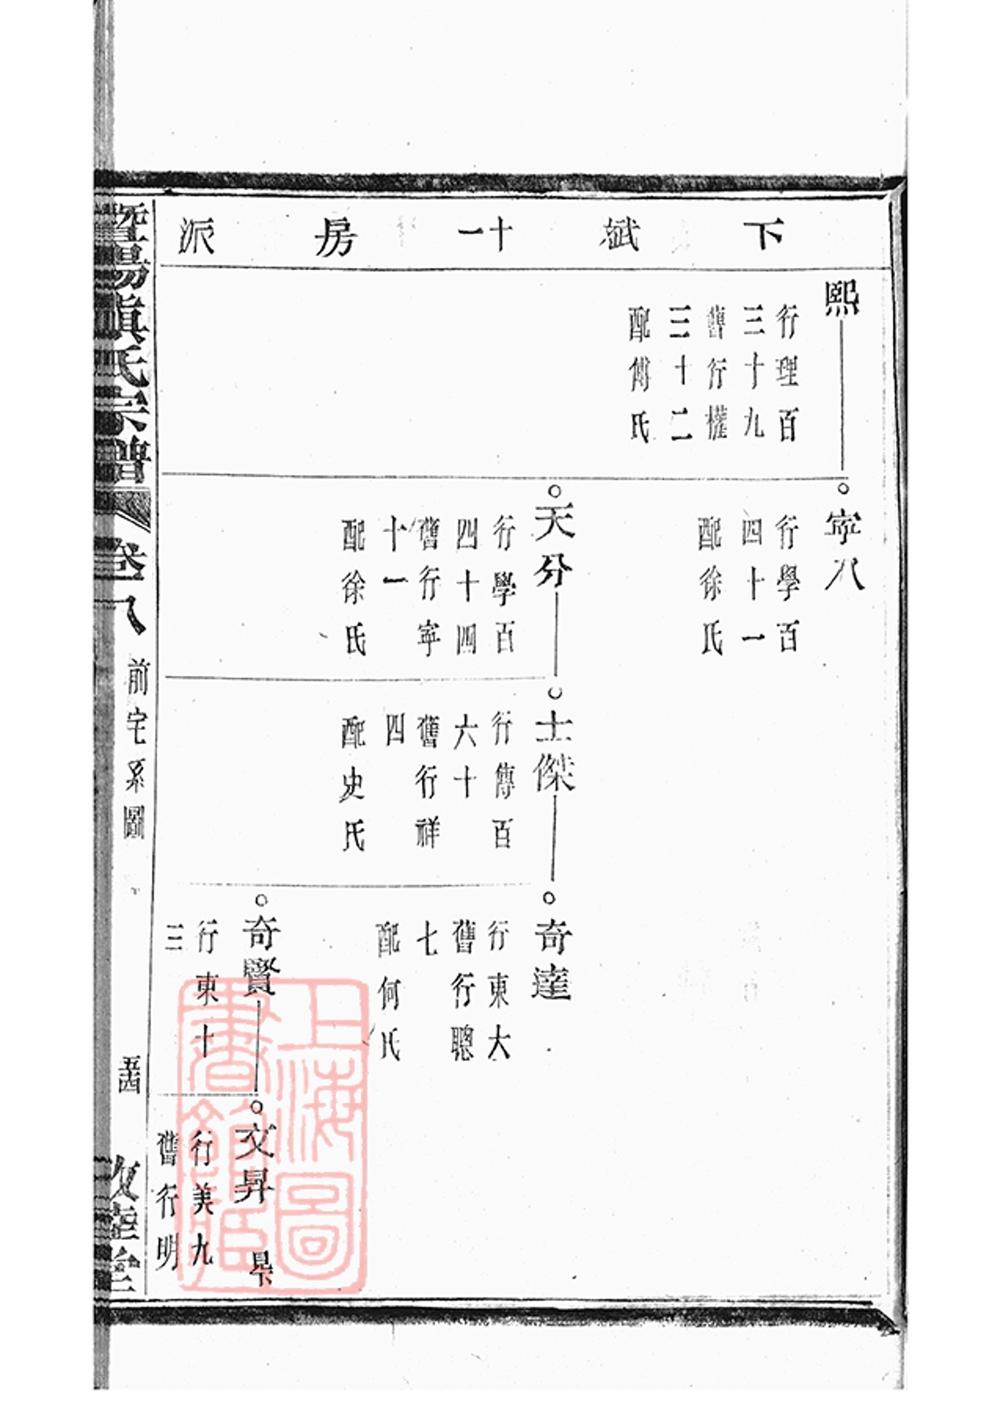 下斌十一房派
熙
行理百
三十九
舊行權
三十二
配傅氏
寧八
行學百
四十一
配徐氏
天分
行學百
四十四
舊行寧
十一
配徐氏
士傑
行傳百
六十
舊行祥
四
配史氏
奇達
行東大
舊行聰
七
配何氏
奇賢
行東十
三
文昇
行美九
舊行明
暨陽 氏宗譜 卷八 前宅系圖
上海圖書館藏